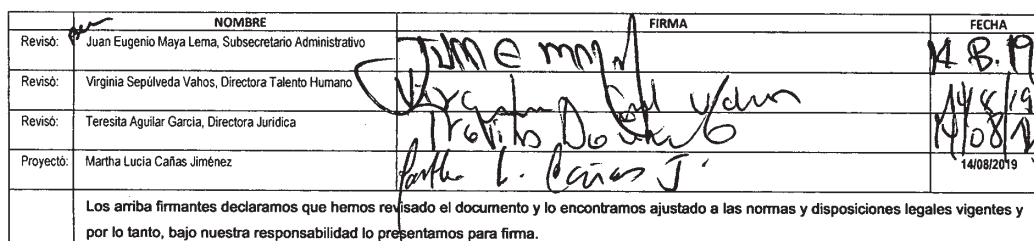 NOMBRE FIRMA FECHA
Revisó: Juan Eugenio Maya Lema, Subsecretario Administrativo
Revisó: Virginia Sepúlveda Vahos, Directora Talento Humano
Revisó: Teresita Aguilar García, Directora Jurídica
Proyectó: Martha Lucía Cañas Jiménez 14/08/2019
Los arriba firmantes declaramos que hemos revisado el documento y lo encontramos ajustado a las normas y disposiciones legales vigentes y
por lo tanto, bajo nuestra responsabilidad lo presentamos para firma.